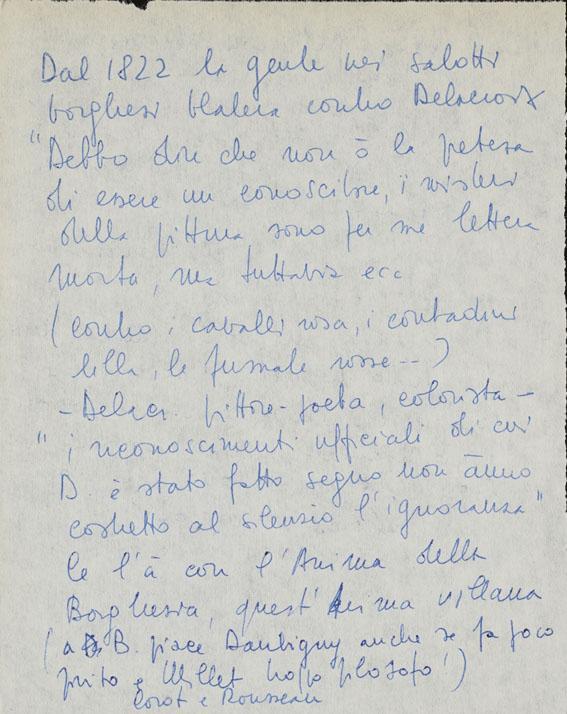 Dal 1822 la gente nei salotti
borghesi blatera contro Delacroix
"Debbo dire che non ō la pretesa
di essere un conoscitore, i misteri
della pittura sono per me lettera
morta, ma tuttavia ecc
(contro i cavalli rosa, i contadini
lilla, le fumate rosse -- )
- Delacr. pittore-poeta, colorista -
" i riconoscimenti ufficiali di cui
D. è stato fatto segno non ānno
costretto al silenzio l'ignoranza"
ce l'ā con l'Anima della
Borghesia, quest'Anima villana
(a B. piace Daubigny anche se fa poco
finito e Millet troppo filosofo!)
Corot e Rousseau